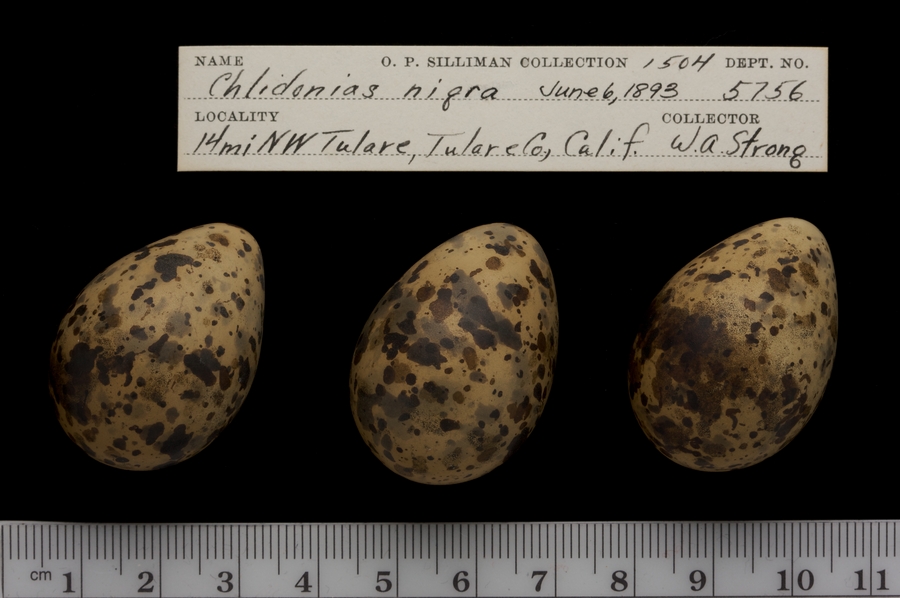 NAME O. P. SILLIMAN COLLECTION 1504 DEPT. NO.
Chlidonias nigra June 6, 1893 5756
LOCALITY COLLECTOR
14mi NW Tulare, Tulare Co, Calif. W.A. Strong
cm 1 2 3 4 5 6 7 8 9 10 11